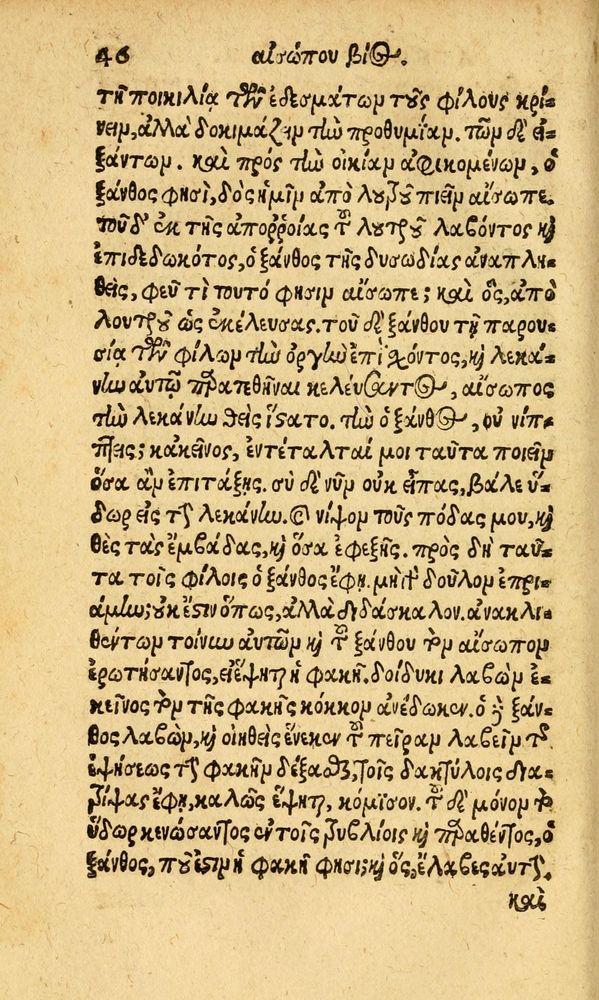 46 αἰσώπου βίος.
τῇ ποικιλίᾳ τῶν ἐδεσμάτων τοὺς φίλους κρί-
νειν, ἀλλὰ δοκιμάζειν τὴν προθυμίαν. τῶν δὲ εἰ-
ξάντων. καὶ πρὸς τὴν οἰκίαν ἀφικομένων, ὁ
ξάνθος φησὶ, δὸς ἡμῖν ἀπὸ λουτροῦ πιεῖν αἴσωπε.
τοῦ δ' ἐκ τῆς ἀποῤῥοίας τοῦ λουτροῦ λαβόντος καὶ
ἐπιδεδωκότος, ὁ ξάνθος τῆς δυσωδίας ἀναπλη-
θεὶς, φεῦ τί τοῦτό φησιν αἴσωπε; καὶ ὅς, ἀπὸ
λουτροῦ ὡς ἐκέλευσας. τοῦ δὲ ξάνθου τῇ παρου-
σίᾳ τῶν φίλων τὴν ὀργὴν ἐπιχόντος, καὶ λεκά-
νην αὐτῷ παρατεθῆναι κελεύσαντος, αἴσωπος
τὴν λεκάνην θεὶς ἵστατο. τὴν ὁ ξάνθος, οὐ νίπ-
τεις; κἀκεῖνος, ἐντέταλταί μοι ταῦτα ποιεῖν
ὅσα ἂν ἐπιτάξῃς. σὺ δὲ νῦν οὐκ εἶπας, βάλε ὕ-
δωρ εἰς τὴν λεκάνην. καὶ νίψον τοὺς πόδας μου, καὶ
θὲς τὰς ἐμβάδας, καὶ ὅσα ἐφεξῆς. πρὸς δὴ ταῦ-
τα τοῖς φίλοις ὁ ξάνθος ἔφη. μὴ γὰρ δοῦλον ἐπρι-
άμην; οὐκ ἔστιν ὅπως, ἀλλὰ διδάσκαλον. ἀνακλι-
θέντων τοίνυν αὐτῶν καὶ τοῦ ξάνθου τὸν αἴσωπον
ἐρωτήσαντος, εἰ ἕψηται ἡ φακῆ. δοίδυκι λαβὼν ἐ-
κεῖνος τὸν τῆς φακῆς κόκκον ἀνέδωκεν. ὁ δὲ ξάν-
θος λαβὼν, καὶ οἰηθεὶς ἕνεκεν τοῦ πεῖραν λαβεῖν τῆς
ἑψήσεως τὴν φακῆν δέξασθαι, τοῖς δακτύλοις δια-
τρίψας ἔφη, καλῶς ἕψηται, κόμισον. τοῦ δὲ μόνον τὸ
ὕδωρ κενώσαντος ἐν τοῖς τρυβλίοις καὶ παραθέντος, ὁ
ξάνθος, ποῦ ἐστιν ἡ φακῆ φησι; καὶ ὅς, ἔλαβες αὐτήν.
καὶ